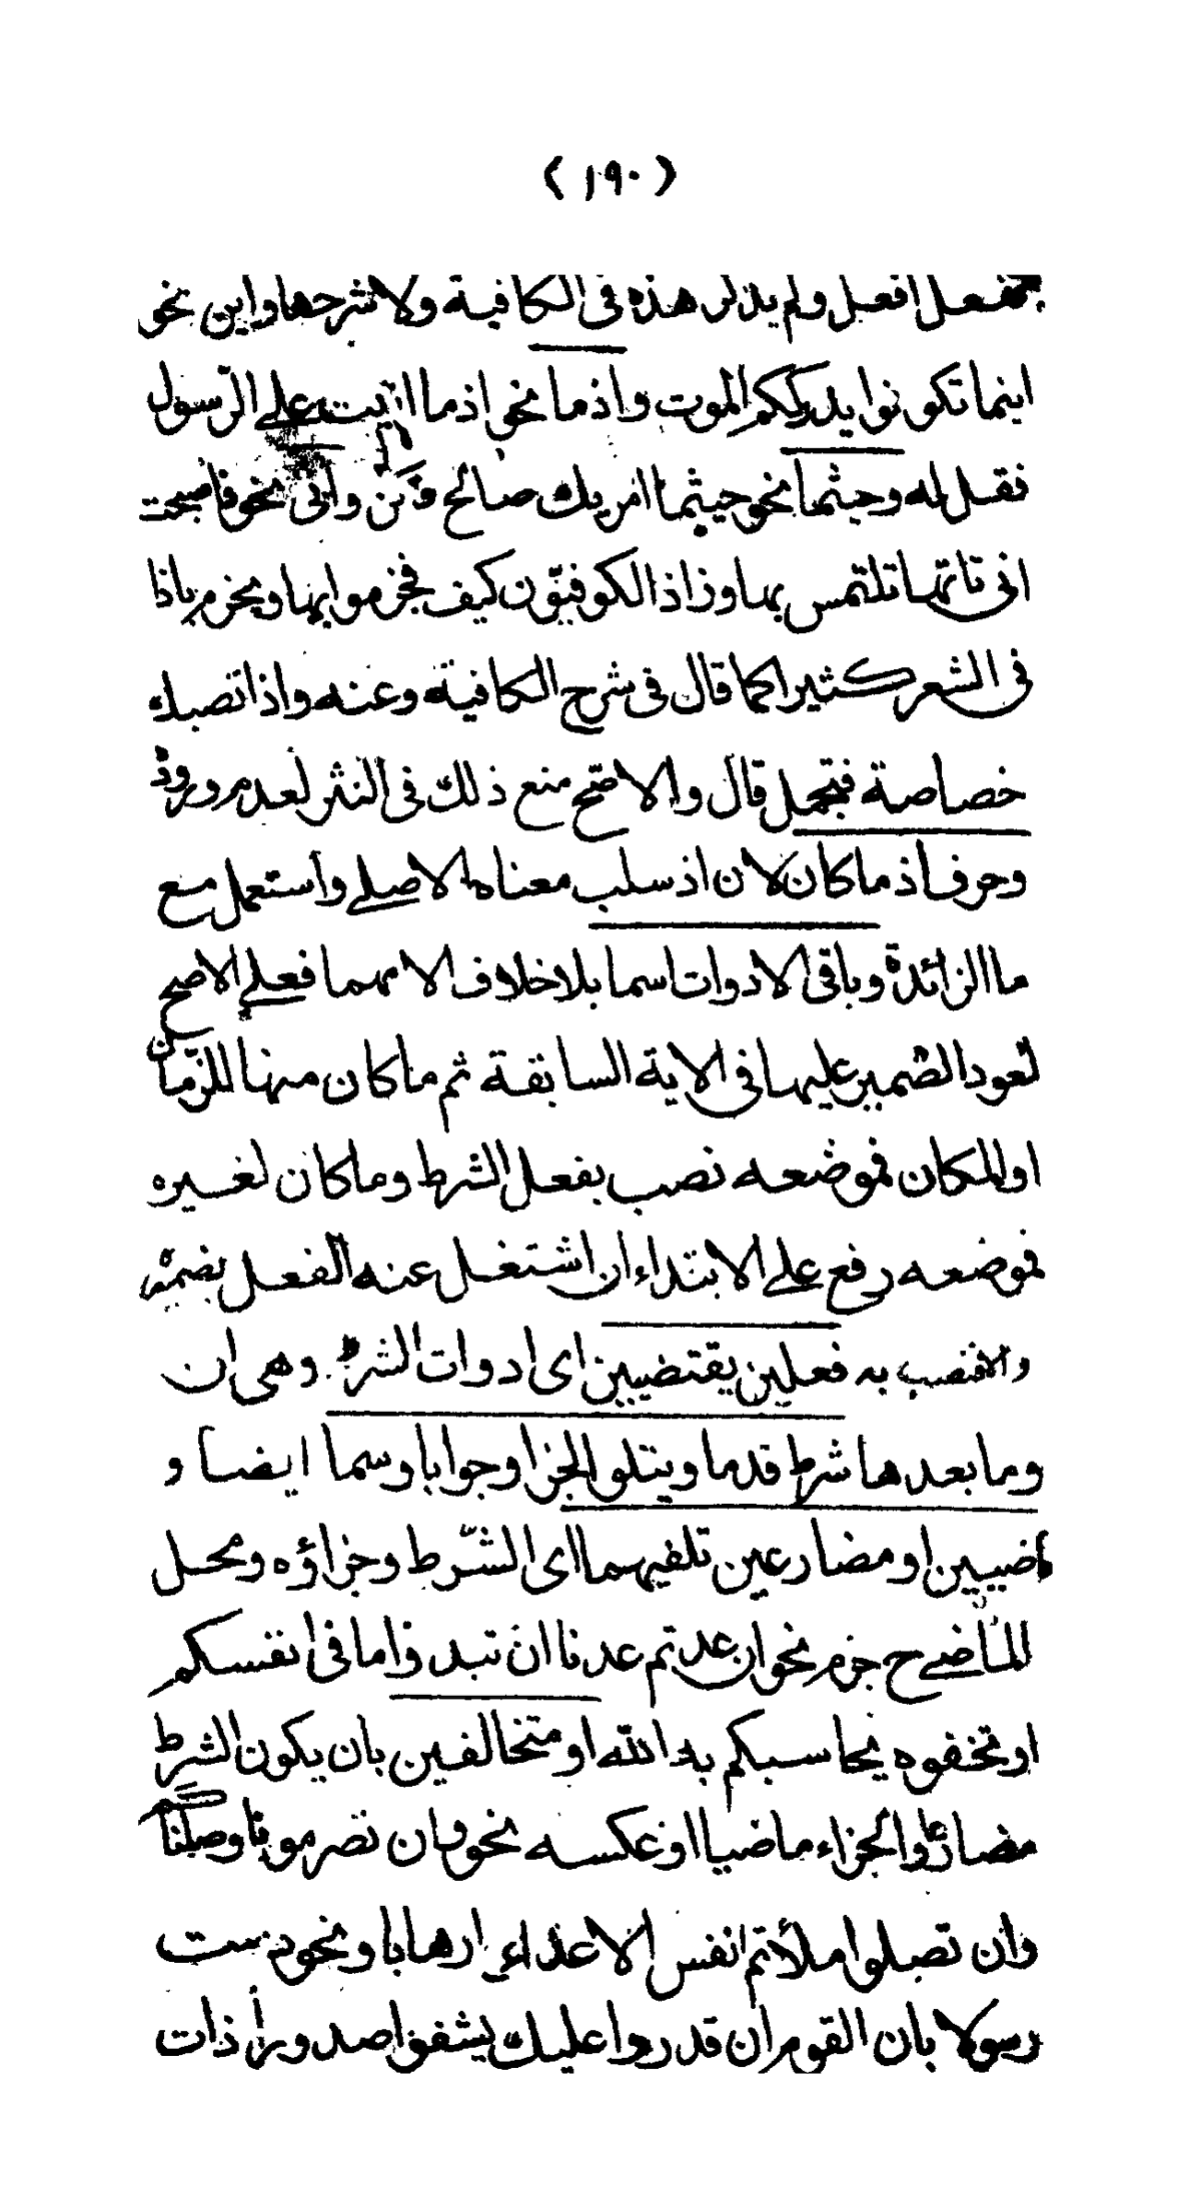 ( ١٩٠ )
تفعل افعل ولم يذكر هذه فى الكافية ولا شرحها واين نحو
اينما تكونوا يدرككم الموت واذما نحو اذما اتيت على الرّسول
فقل له وحيثما نحو حيثما امر يك صالح فكن وانى نحو فاصبحت
انى تاتها تلتمس بها وزاد الكوفيّون كيف فجزموا بها ويجزم باذا
فى الشعر كثيرا كما قال فى شرح الكافية وعنه واذا تصبك
خصاصة فتجمل قال والاصّح منع ذلك فى النثر لعدم وروده
وحرف اذ ما كان لان اذ سلب معناه الاصلى واستعمل مع
ما الزائدة وباقى الادوات اسما بلا خلاف الا مهما فعلى الاصح
لعود الضمير عليها فى الاية السابقة ثم ما كان منها للزّمان
او المكان فموضعه نصب بفعل الشرط وما كان لغيره
فموضعه رفع على الابتداء ان اشتغل عنه الفعل بضميره
والا فنصب به فعلين يقتضيين اى ادوات الشرط وهى ان
وما بعدها شرط قدما ويتلو الجزا وجوابا وسما ايضا و
ماضيين او مضارعين تلفيهما اى الشّرط وجزاؤه ومحل
الماضى ح جزم نحو ان عدتم عدنا ان تبدوا ما فى انفسكم
او تخفوه يحاسبكم به الله او متخالفين بان يكون الشرط
مضارعا والجزاء ماضيا او عكسه نحو ان تصرمونا وصلناكم
وان تصلوا ملأتم انفس الاعداء ارهابا ونحو دست
رسولا بان القوم ان قدروا عليك يشفوا صدورا ذات